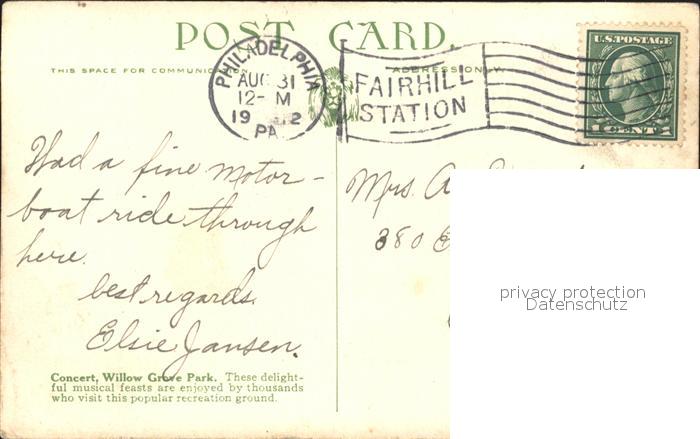 POST CARD.
THIS SPACE FOR
ADDRESS ONLY.
PHILADELPHIA
AUG 31
12- M
19 12
PA.
FAIRHILL
STATION
U.S. POSTAGE
1 CENT 1
Had a fine motor-
boat ride through
here.
best regards.
Elsie Jansen.
Mrs. A.
380 E
privacy protection
Datenschutz
Concert, Willow Grove Park. These delight-
ful musical feasts are enjoyed by thousands
who visit this popular recreation ground.